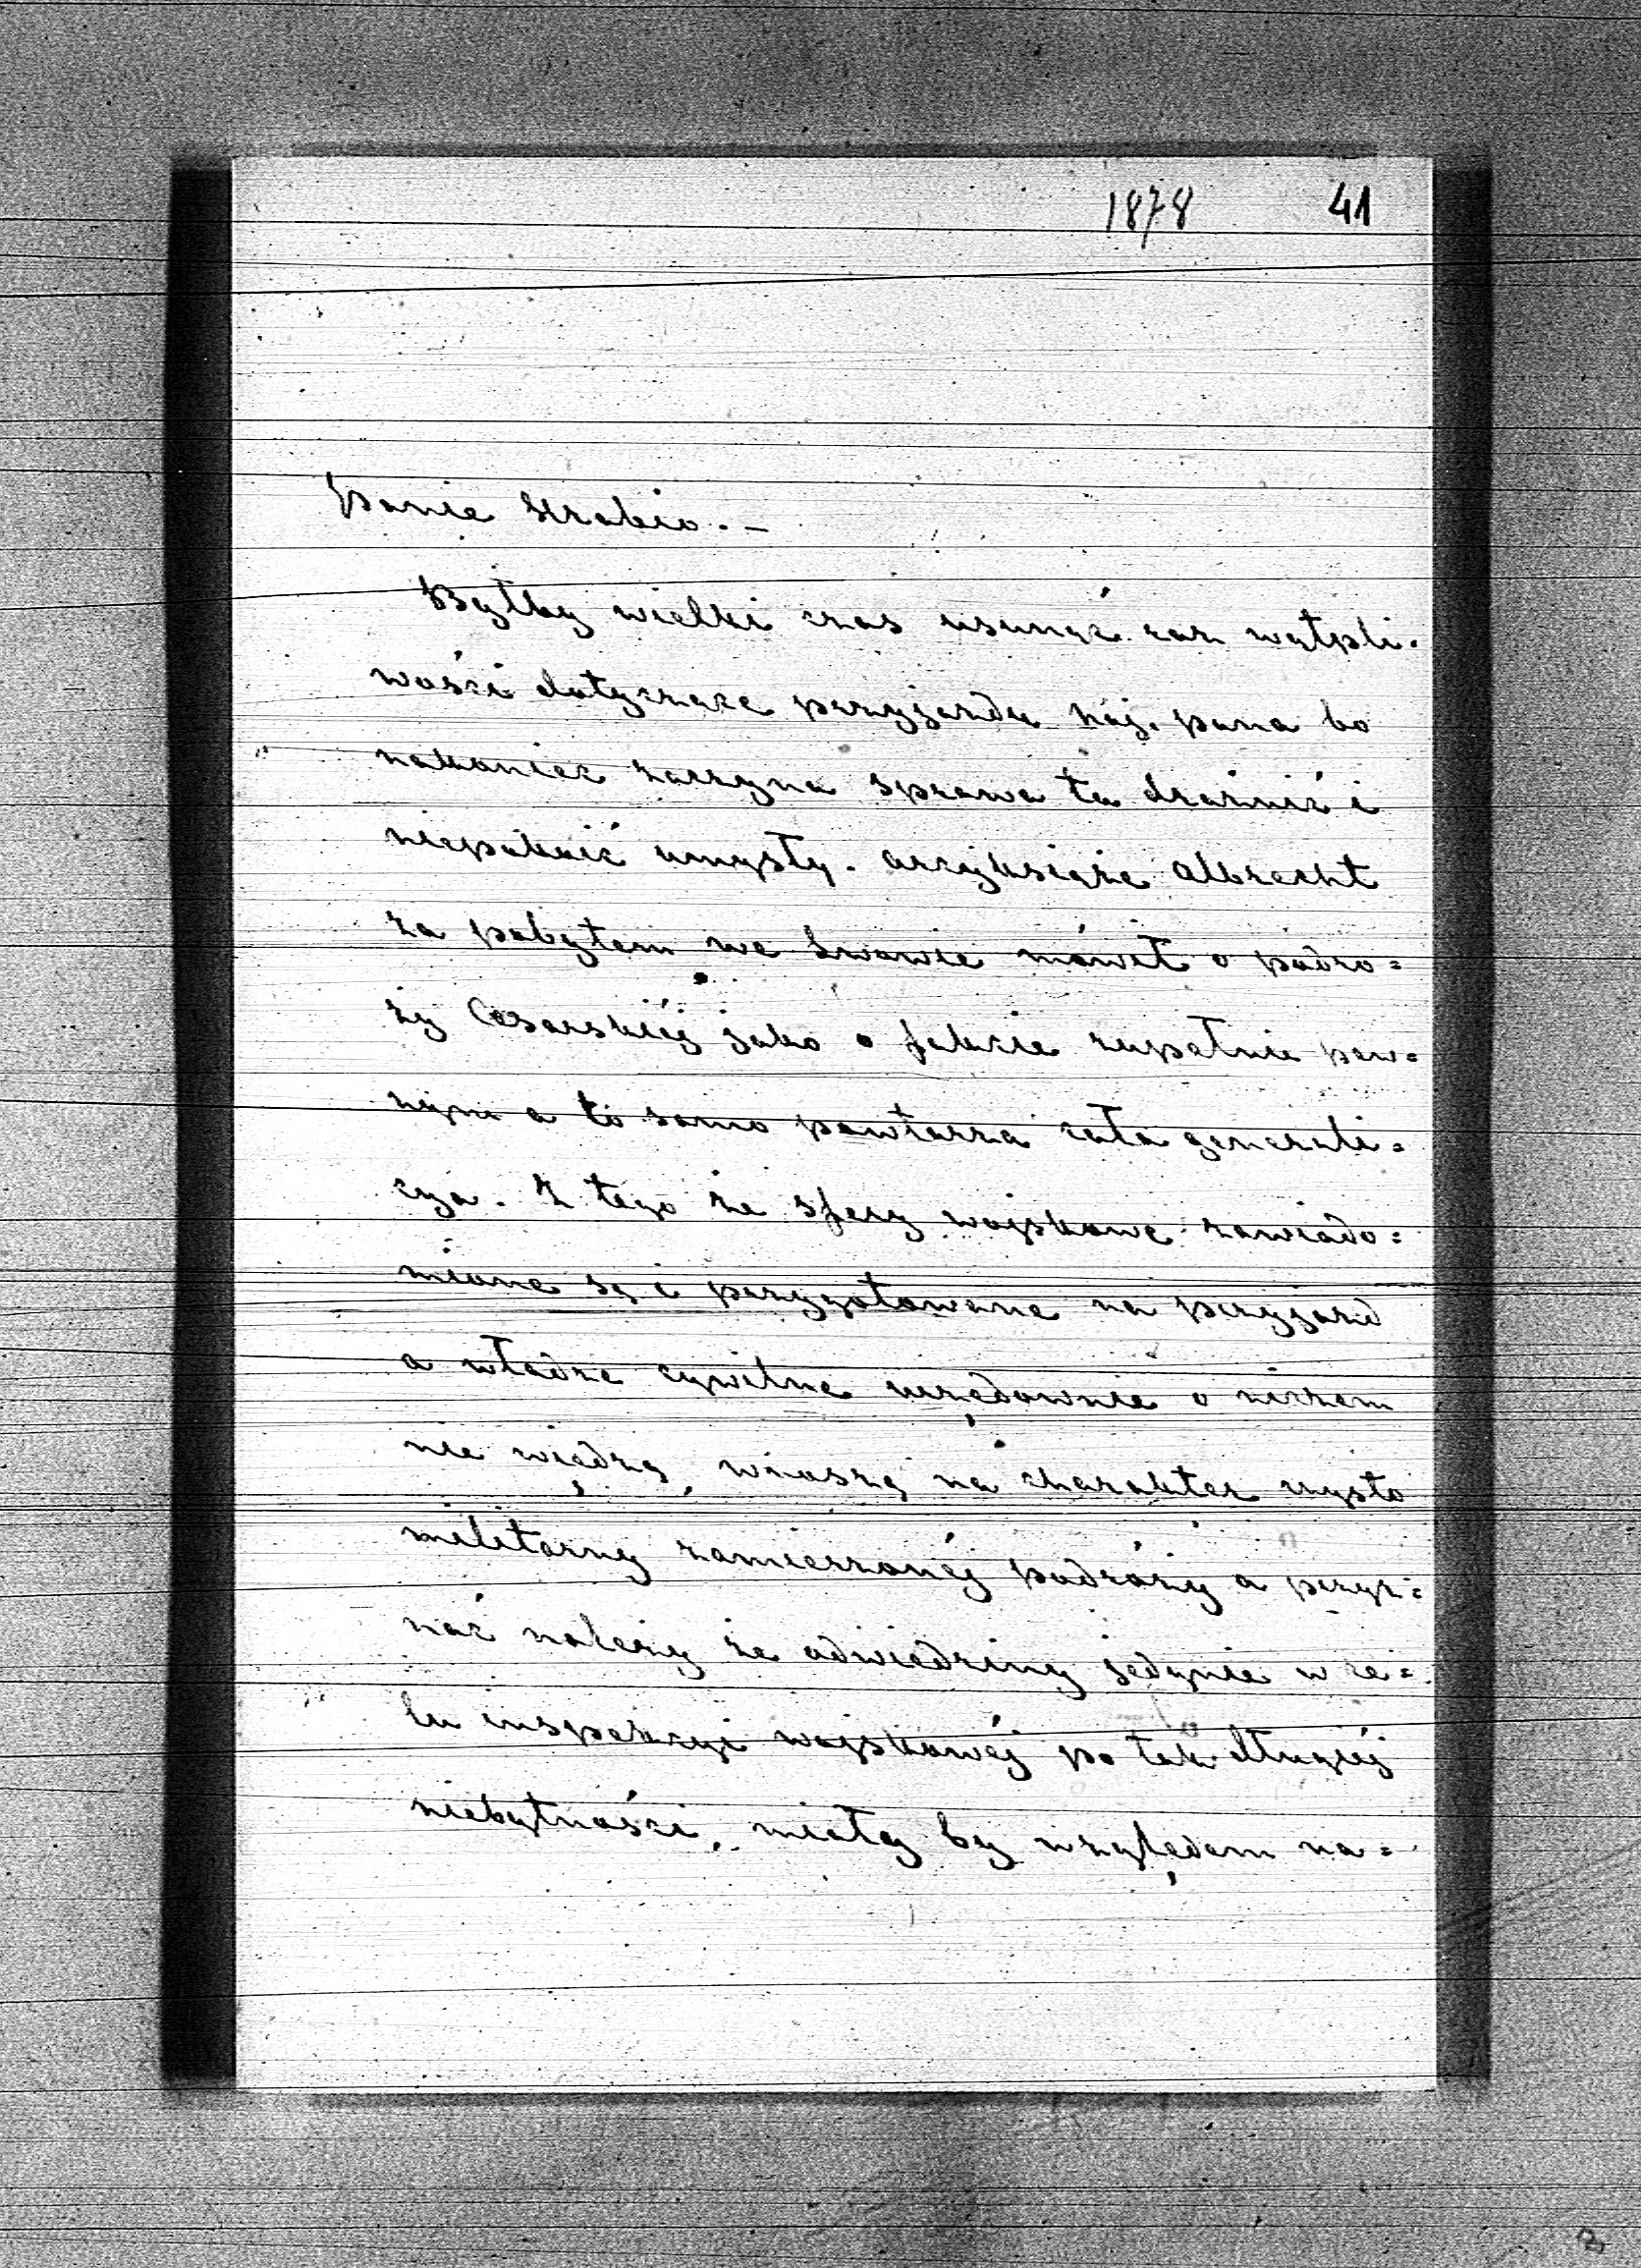 1878 41
Panie Hrabio. –
Byłby wielki czas usunąć raz wątpli-
wości dotyczące przyjazdu Naj. pana bo
nakoniec zaczyna sprawa ta drażnić i
niepokoić umysły. Arcyksiąże Albrecht
za pobytem we Lwowie mówił o podro=
ży Cesarskiéj jako o fakcie zupełnie pew=
nym a to samo powtarza cała generali=
cya. Z tego że sfery wojskowe zawiado=
mione są i przygotowane na przyjazd
a władze cywilne urzędownie o niczem
nie wiedzą, wnoszą na charakter czysto
militarny zamierzonéj podróży a przyz=
nać należy że odwiedziny jedynie w ce=
lu inspekcyi wojskowéj po tak długiéj
niebytności, miały by względem na=